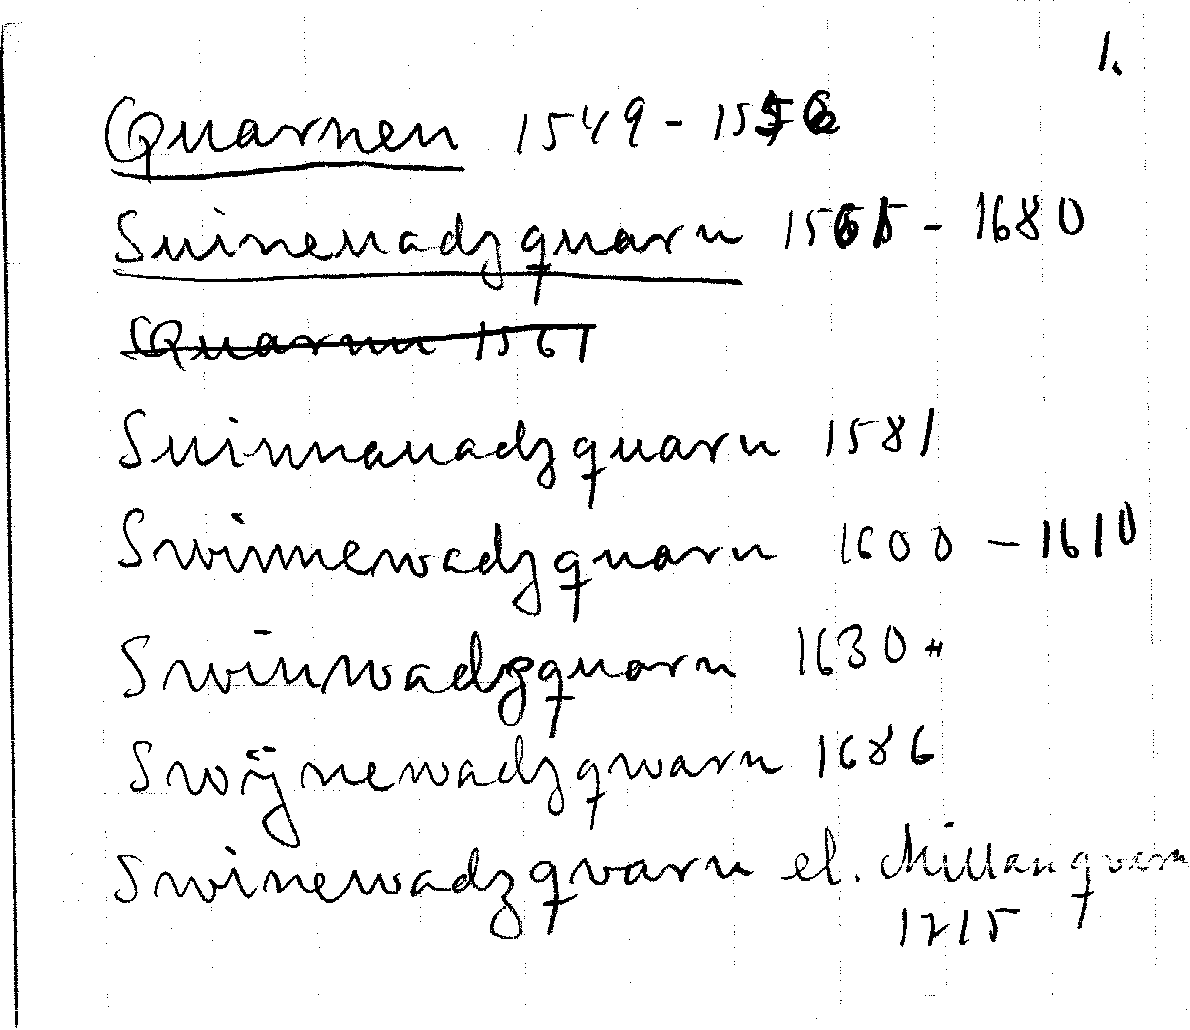 1.
Quarnen 1549 - 1556
Suinevadzquarn 1565 - 1680
Quarnn 1561
Suinnauadzquarn 1581
Swinnewadzquarn 1600 - 1610
Swinwadzquarn 1630
Swijnewadzqwarn 1686
Swinewadzqvarn el. Millanqvarn
1715